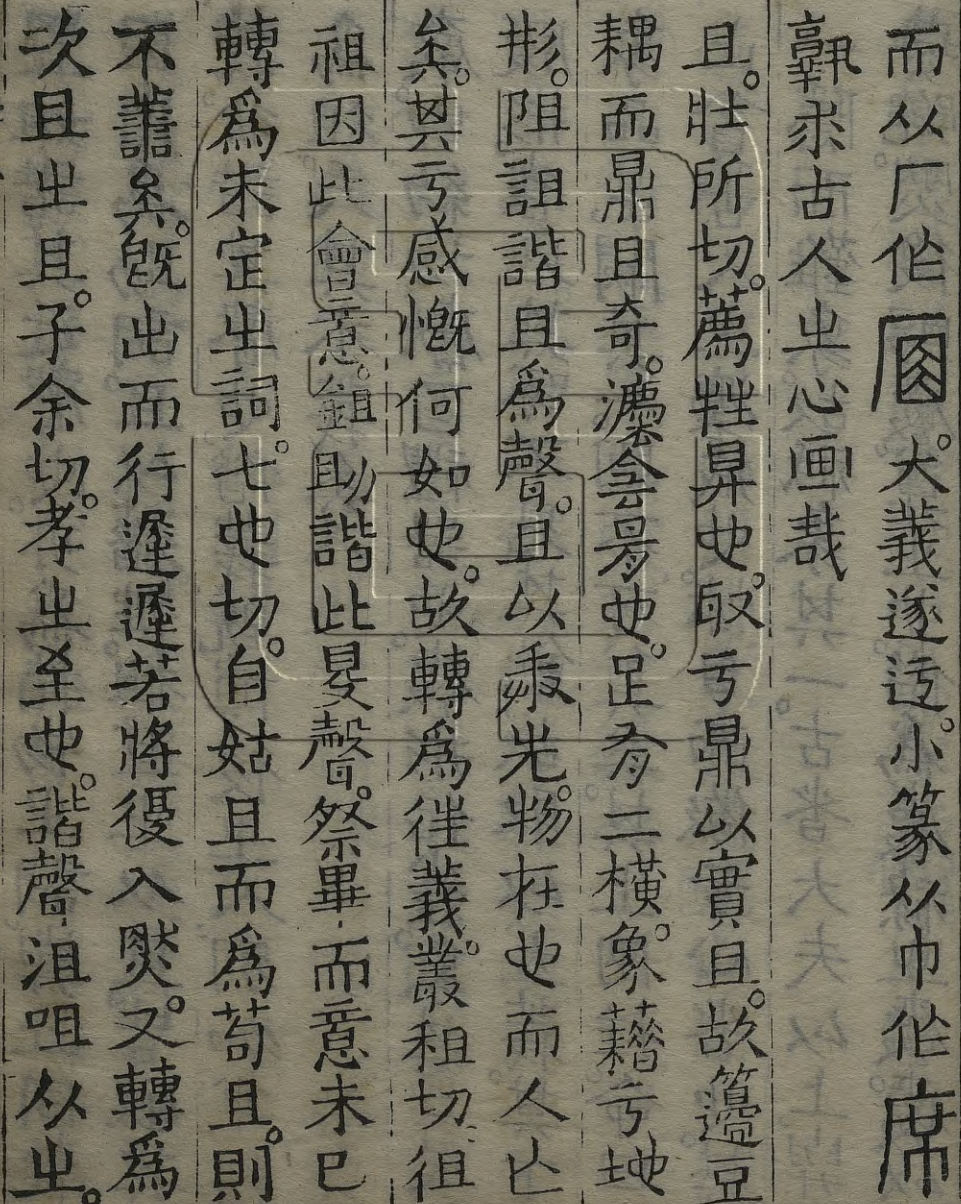 而从厂作。大義遂迃。小篆从巾作席
求古人㞢心画哉
且。壯所切。薦牲昇也。取亏鼎以實且。故籩豆
耦而鼎且奇。灋侌昜也。足有二橫。象藉亏地
形。阻詛諧且爲聲。且以承先。物在也而人亾
矣。其亏感慨何如也。故轉爲徃義。叢租切。徂
祖因此會意。鉏助諧此聲。祭畢而意未已
轉爲未定㞢詞。七也切。自姑且而爲苟且。則
不譱矣。旣出而行遲遲若將復入然。又轉爲
次且㞢且。子余切。孝㞢至也。諧聲沮咀从㞢。